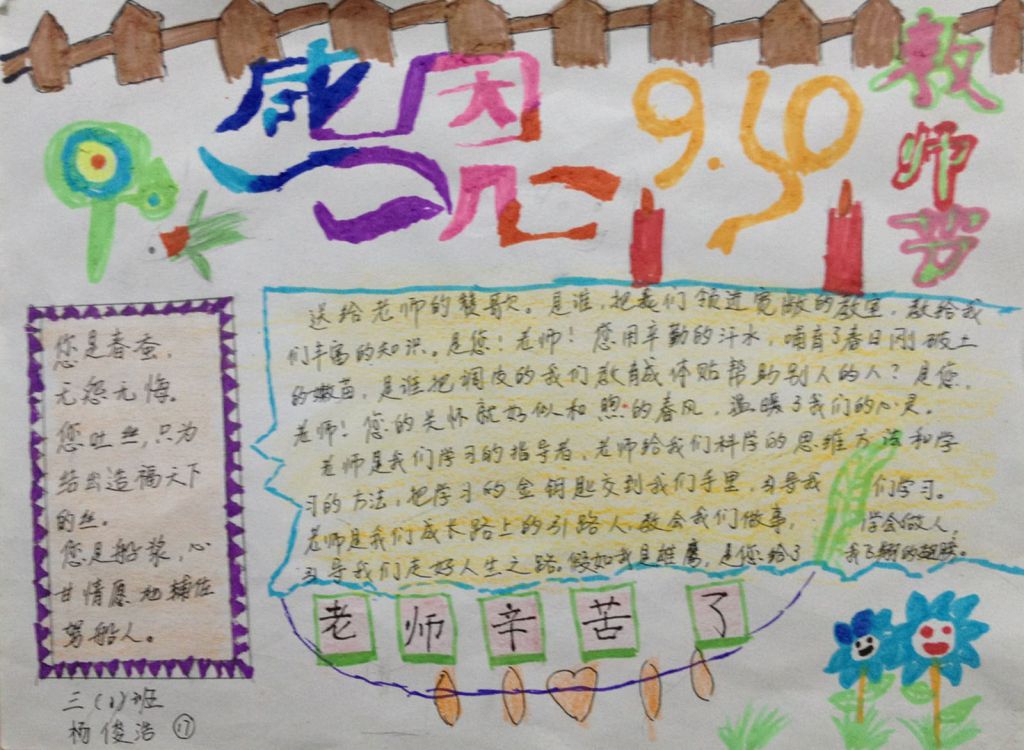 感恩
9.10
教师节
您是春蚕，
无怨无悔。
您吐丝，只为
结出造福天下
的丝。
您是船桨，心
甘情愿地辅佐
驾船人。
三(1)班
杨俊浩 ⑰
送给老师的赞歌。是谁，把我们领进宽敞的教室，教给我
们丰富的知识。是您！老师！您用辛勤的汗水，哺育了春日刚破土
的嫩苗，是谁把调皮的我们教育成体贴帮助别人的人？是您，
老师！您的关怀就好似和煦的春风，温暖了我们的心灵。
老师是我们学习的指导者，老师给我们科学的思维方法和学
习的方法，把学习的金钥匙交到我们手里，引导我们学习。
老师是我们成长路上的引路人，教会我们做事，学会做人，
引导我们走好人生之路。假如我是雄鹰，是您给了我飞翔的翅膀。
老师辛苦了